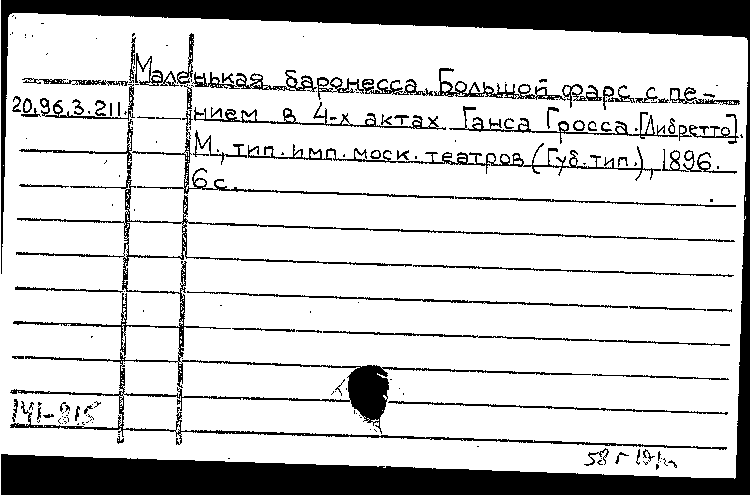 Маленькая баронесса. Большой фарс с пе-
20.96.3.211. нием в 4-х актах Ганса Гросса. [Либретто].
М., тип. имп. моск. театров (Губ. тип.), 1896.
6 с.
141-815
58 г